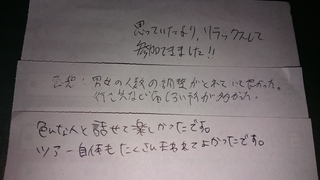 思っていたより、リラックスして
参加できました!!
感想・男女の人数の調整がとれていてよかった。
行き先など面白い所が多かった。
色んな人と話せて楽しかったです。
ツアー自体もたくさんまわれてよかったです。